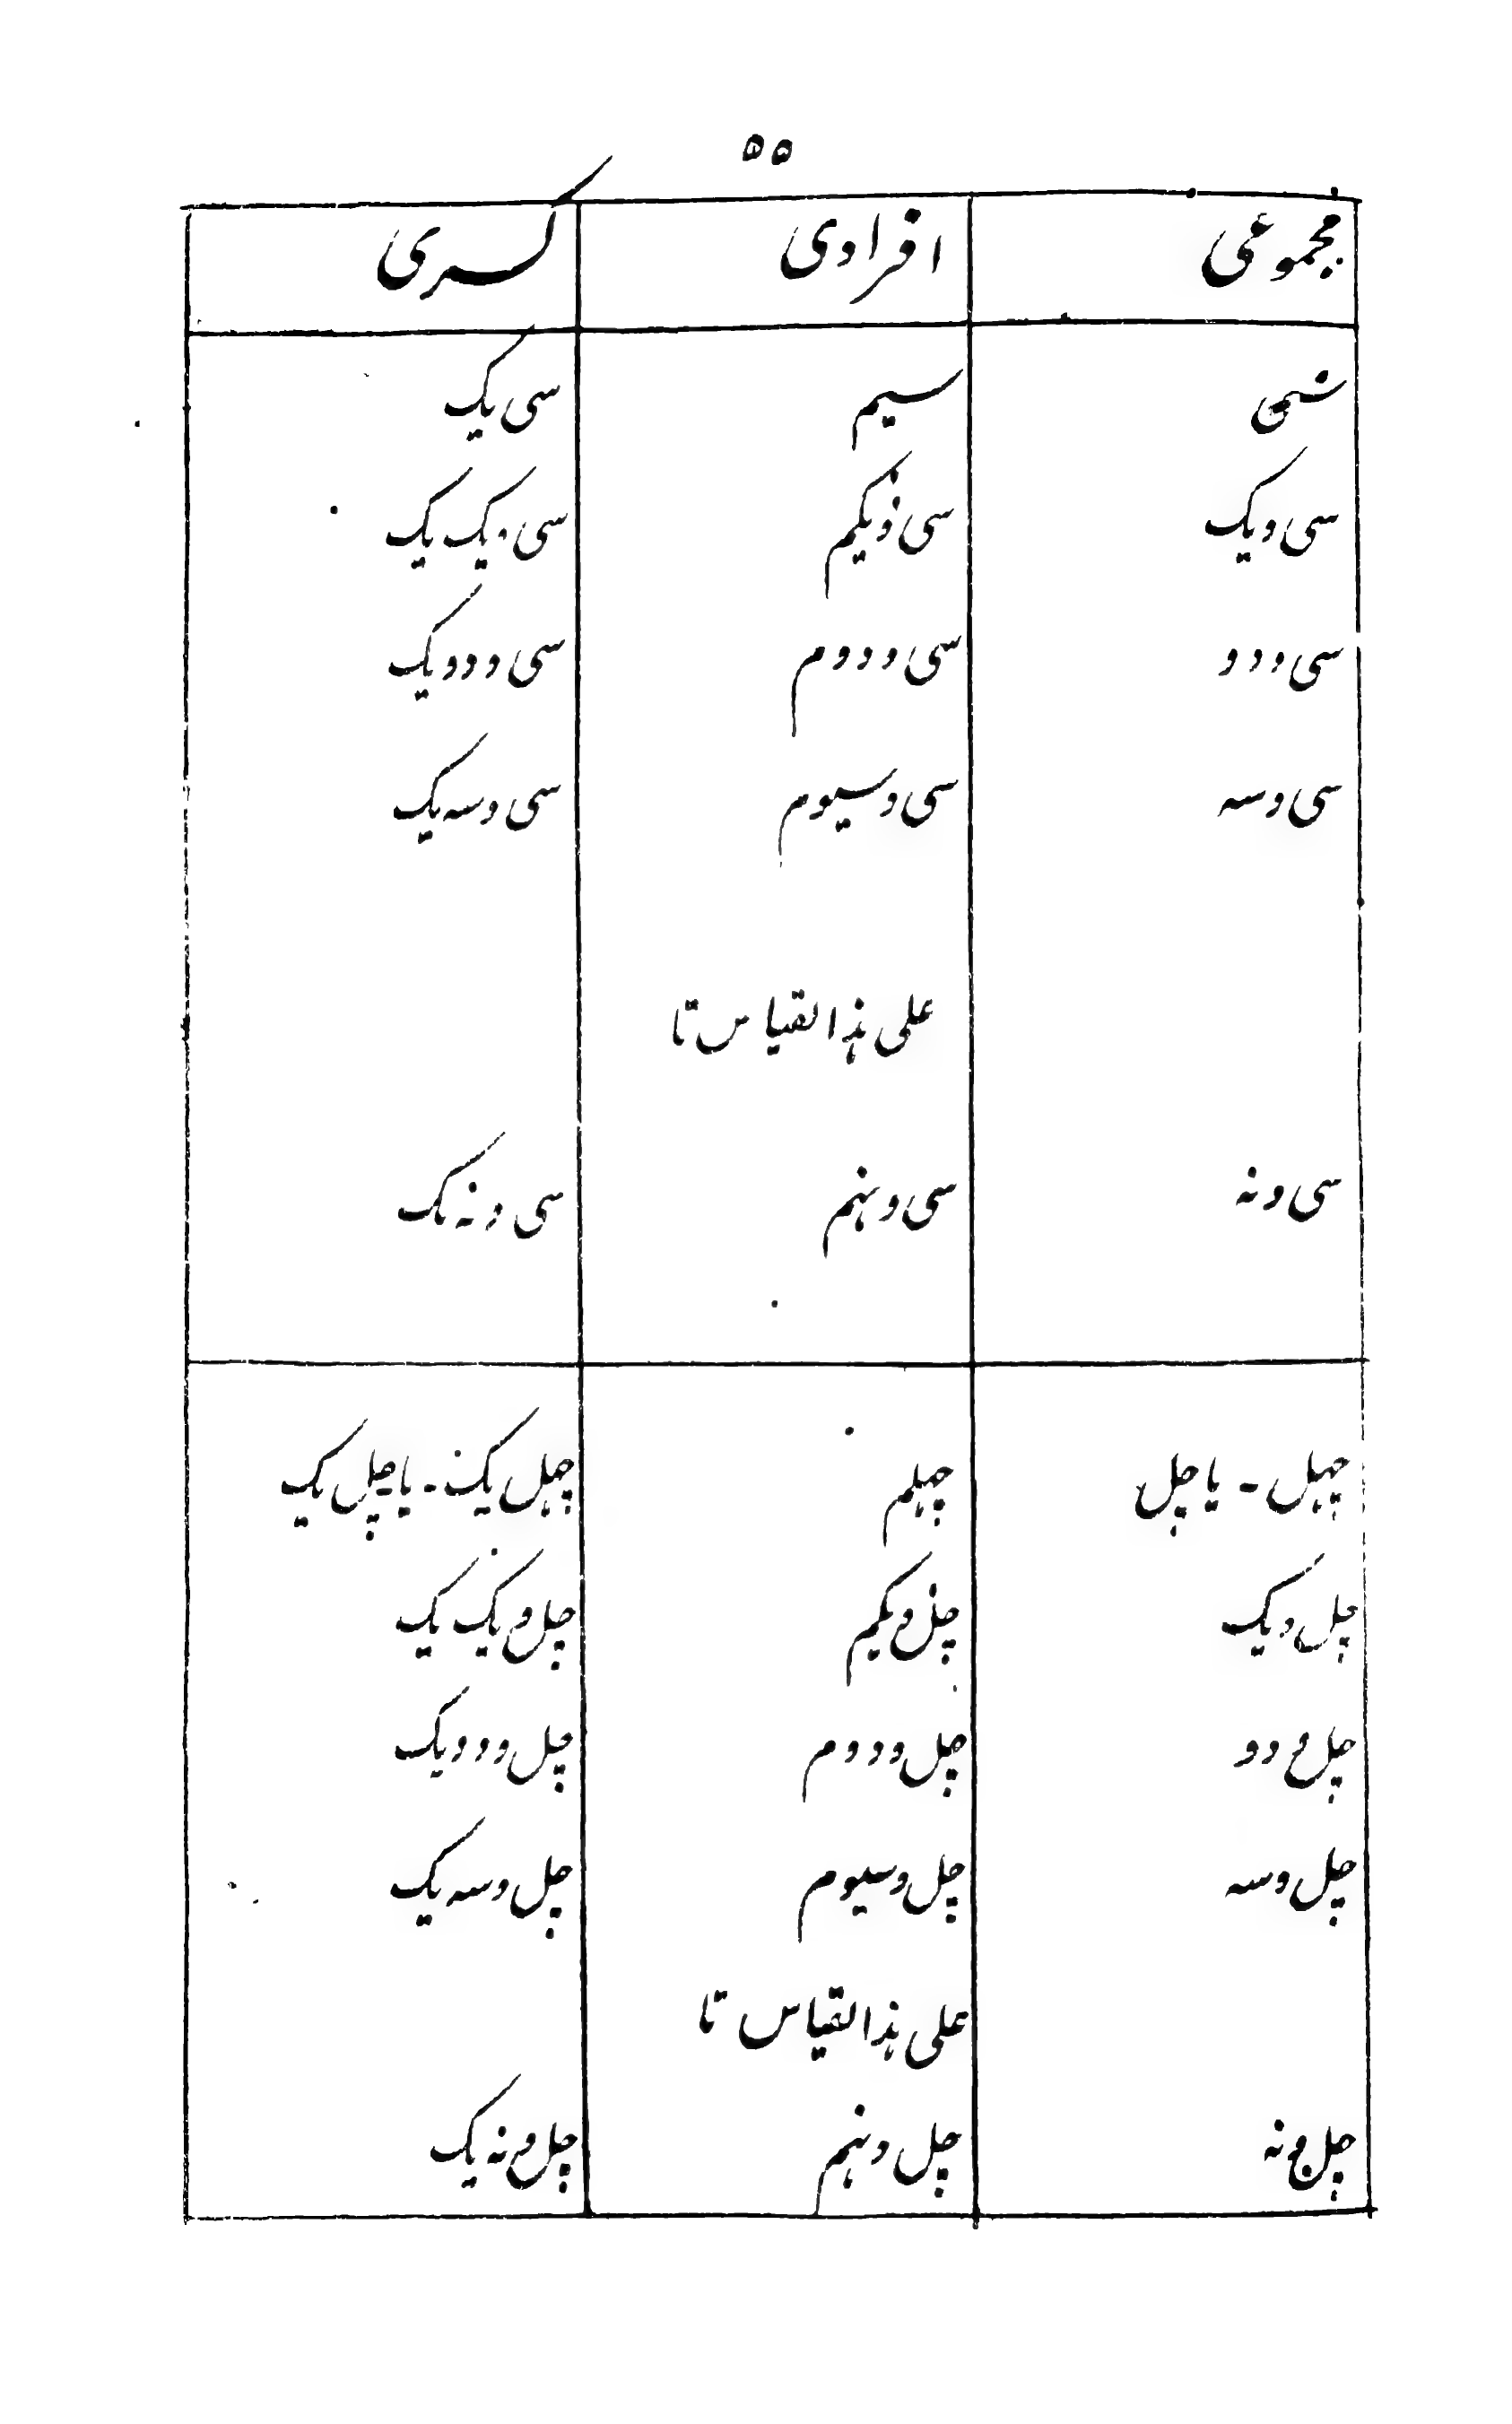 ۵۵
مجموعی افرادی کسری
سی سیم سی یک
سی و یک سی و یکم سی و یک یک
سی و دو سی و دوم سی و دو یک
سی و سه سی و سیوم سی و سه یک
علی ہذا القیاس تا
سی و نه سی و نہم سی و نه یک
چہل - یا چل چہلم چہل یک - یا چل یک
چل و یک چل و یکم چل و یک یک
چل و دو چل و دوم چل و دو یک
چل و سه چل و سیوم چل و سه یک
علی ہذا القیاس تا
چل و نه چل و نہم چل و نه یک